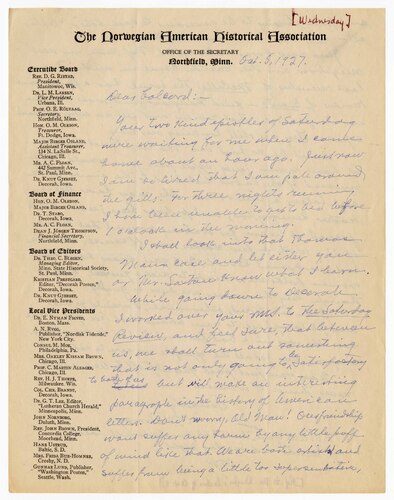 [Wednesday]
The Norwegian American Historical Association
OFFICE OF THE SECRETARY
Northfield, Minn. Oct. 5, 1927.
Executive Board
REV. D. G. RISTAD,
President,
Manitowoc, Wis.
DR. L. M. LARSON,
Vice President,
Urbana, Ill.
PROF. O. E. RÖLVAAG,
Secretary,
Northfield, Minn.
HON. O. M. OLESON,
Treasurer,
Ft. Dodge, Iowa.
MAJOR BIRGER OSLAND,
Assistant Treasurer,
134 N. LaSalle St.,
Chicago, Ill.
MR. A. C. FLOAN,
442 Summit Ave.,
St. Paul, Minn.
DR. KNUT GJERSET,
Decorah, Iowa.
Board of Finance
HON. O. M. OLESON,
MAJOR BIRGER OSLAND,
DR. T. STABO,
Decorah, Iowa.
MR. A. C. FLOAN,
DEAN J. JÖRGEN THOMPSON,
Financial Secretary,
Northfield, Minn.
Board of Editors
DR. THEO. C. BLEGEN,
Managing Editor,
Minn. State Historical Society,
St. Paul, Minn.
KRISTIAN PRESTGARD,
Editor, "Decorah Posten,"
Decorah, Iowa.
DR. KNUT GJERSET,
Decorah, Iowa.
Local Vice Presidents
Boston, Mass.
A. N. RYGG,
Publisher, "Nordisk Tidende,"
New York City.
Philadelphia, Pa.
Chicago, Ill.
PROF. C. MARTIN ALSAGER,
Chicago, Ill.
REV. H. J. THORPE,
Milwaukee, Wis.
Decorah, Iowa.
DR. G. T. LEE, Editor
"Lutheran Herald,"
Minneapolis, Minn.
JOHN NORSBERG,
Duluth, Minn.
REV. JOHN BROWN, President
Concordia College,
Moorhead, Minn.
Bismarck, N. D.
Crosby, N. D.
GUNNAR LUND, Publisher,
"Washington Posten,"
Seattle, Wash.
Dear Colcord:—
Your two kind epistles of Saturday
were waiting for me when I came
home about an hour ago. Just now
I am so tired that I am pale around
the gills. For three nights running
I have been unable to get to bed before
1 o'clock in the morning.
I shall look into that Thomas
Mann case and let either you
or Mr. Saxton know what I learn.
While going down to Decorah
I worked over your MM. to The Saturday
Review, and feel sure, that between
us, we shall turn out something
that is not only going to be satisfactory
to both of us but will make an interesting
paragraph in the history of American
letters. Don't worry, Old Man! Our friendship
won't suffer any harm by any little puff
of wind like that. We are both artists and
suffer from being a little too supersensitive,